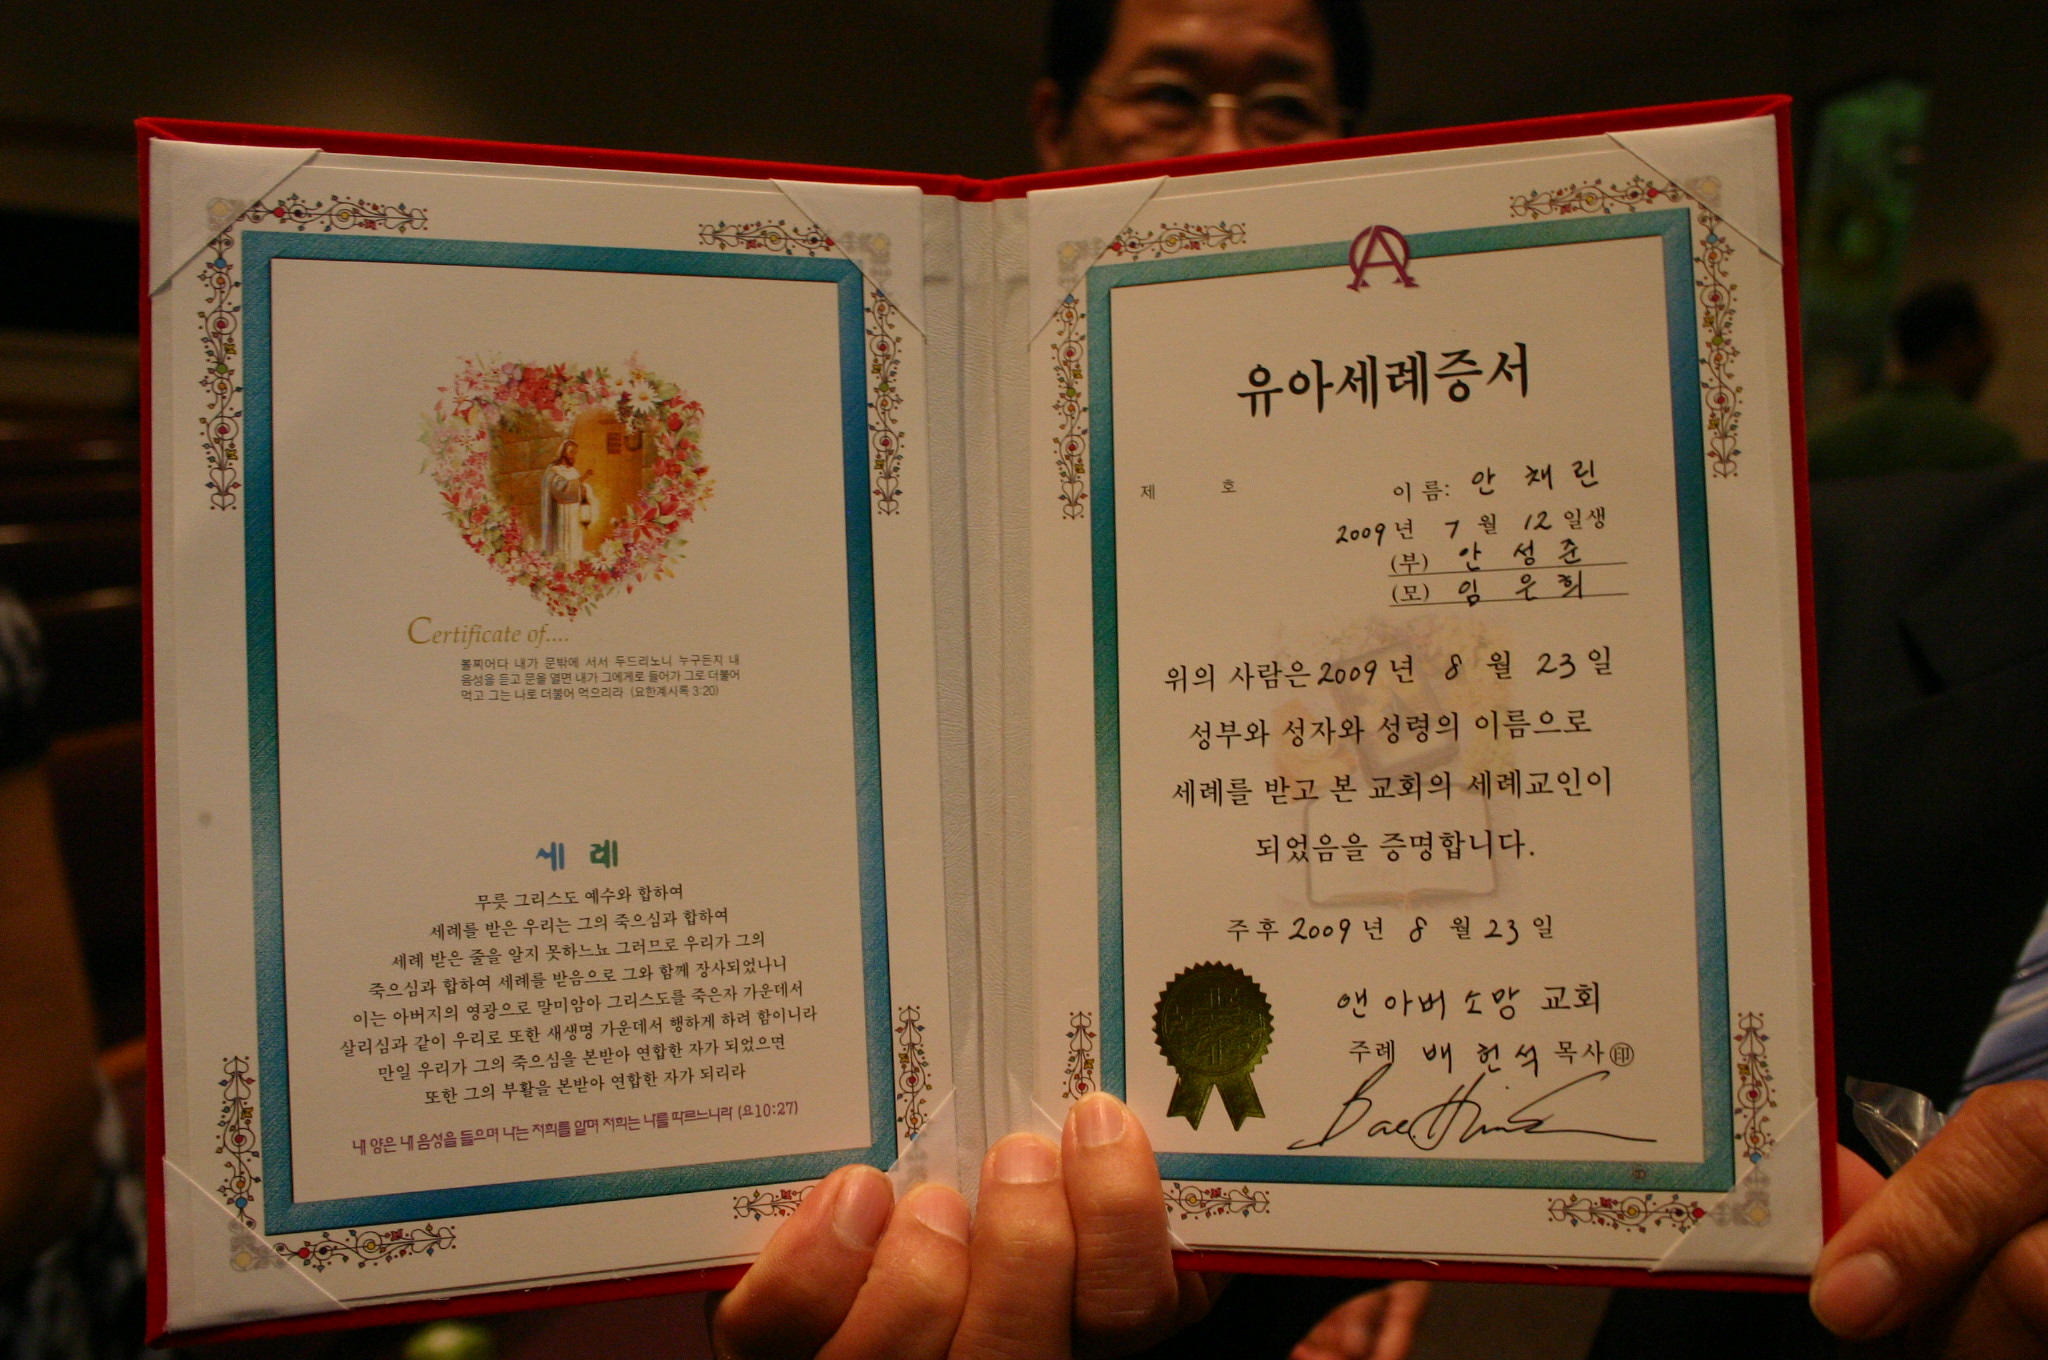 Certificate of....
볼찌어다 내가 문밖에 서서 두드리노니 누구든지 내
음성을 듣고 문을 열면 내가 그에게로 들어가 그로 더불어
먹고 그는 나로 더불어 먹으리라 (요한계시록 3:20)
세 례
무릇 그리스도 예수와 합하여
세례를 받은 우리는 그의 죽으심과 합하여
세례 받은 줄을 알지 못하느뇨 그러므로 우리가 그의
죽으심과 합하여 세례를 받음으로 그와 함께 장사되었나니
이는 아버지의 영광으로 말미암아 그리스도를 죽은자 가운데서
살리심과 같이 우리로 또한 새생명 가운데서 행하게 하려 함이니라
만일 우리가 그의 죽으심을 본받아 연합한 자가 되었으면
또한 그의 부활을 본받아 연합한 자가 되리라
내 양은 내 음성을 들으며 나는 저희를 알며 저희는 나를 따르느니라 (요10:27)
유아세례증서
제 호 이 름: 안 채 린
2009년 7 월 12 일생
(부) 안 성 준
(모) 임 은 희
위의 사람은 2009 년 8 월 23 일
성부와 성자와 성령의 이름으로
세례를 받고 본 교회의 세례교인이
되었음을 증명합니다.
주후 2009 년 8 월 23 일
앤 아버 소망 교회
주례 배 헌 석 목사 印